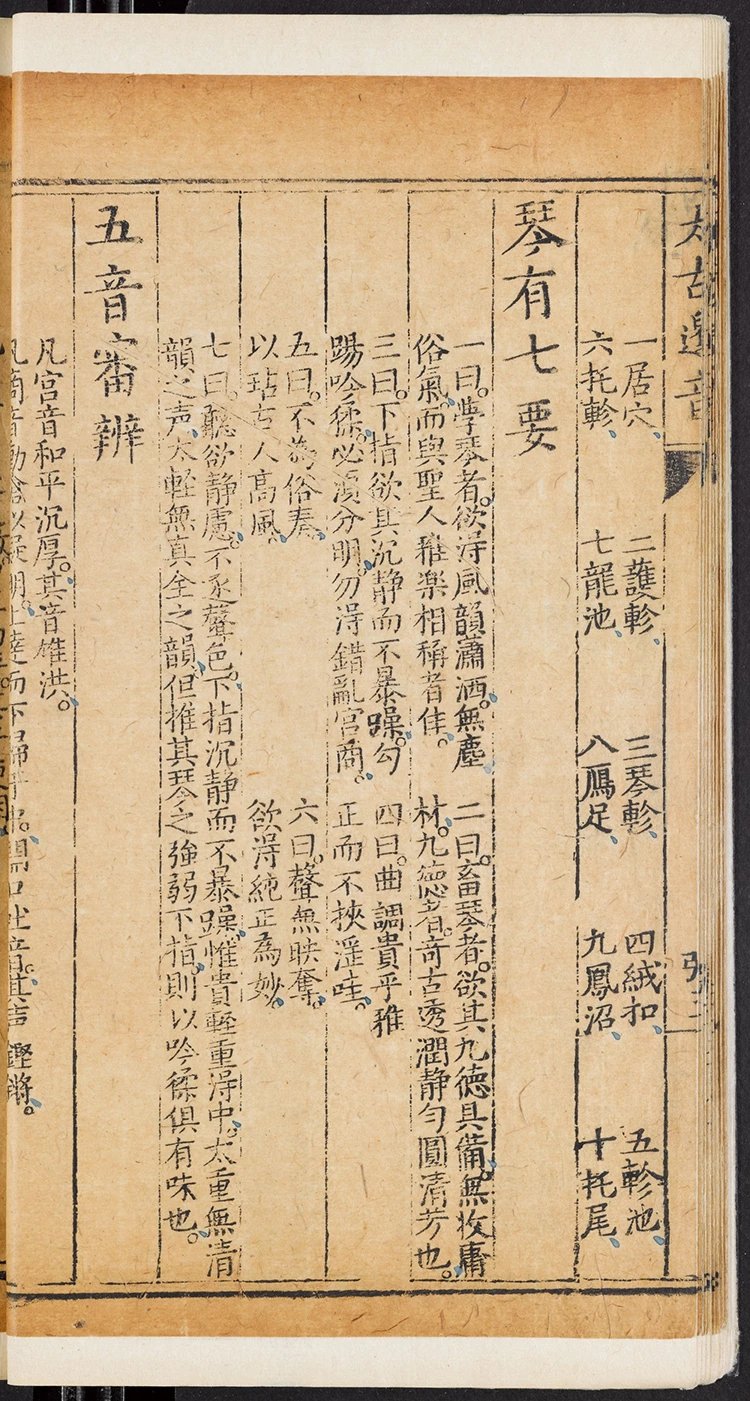 太古遺音
一居穴、 二䕶軫、 三琴軫、 四絨扣、 五軫池、
六托軫、 七龍池、 八鴈足、 九鳳沼、 十托尾、
琴有七要
一曰。學琴者。欲淂風韻瀟洒。無塵
俗氣。而與聖人雅楽相稱者佳。
二曰。畜琴者。欲其九德具備。無收庸
材。九德者。竒古透潤静勻圓清芳也。
三曰。下指欲其沉静而不暴躁。勾
踢吟猱。必湏分明。勿淂錯亂宮商。
四曰。曲調貴乎雅
正而不挾滛哇。
五曰。不為俗奏。
以玷古人高風。
六曰。聲無映奪。
欲淂純正為妙。
七曰。聽欲静慮。不丞聲色。下指沉静而不暴躁。惟貴輕重淂中。太重無清
韻之声。太輕無真全之韻。但推其琴之強弱下指。則以吟猱俱有味也。
五音審辨
凡宮音和平沉厚。其音雄洪。